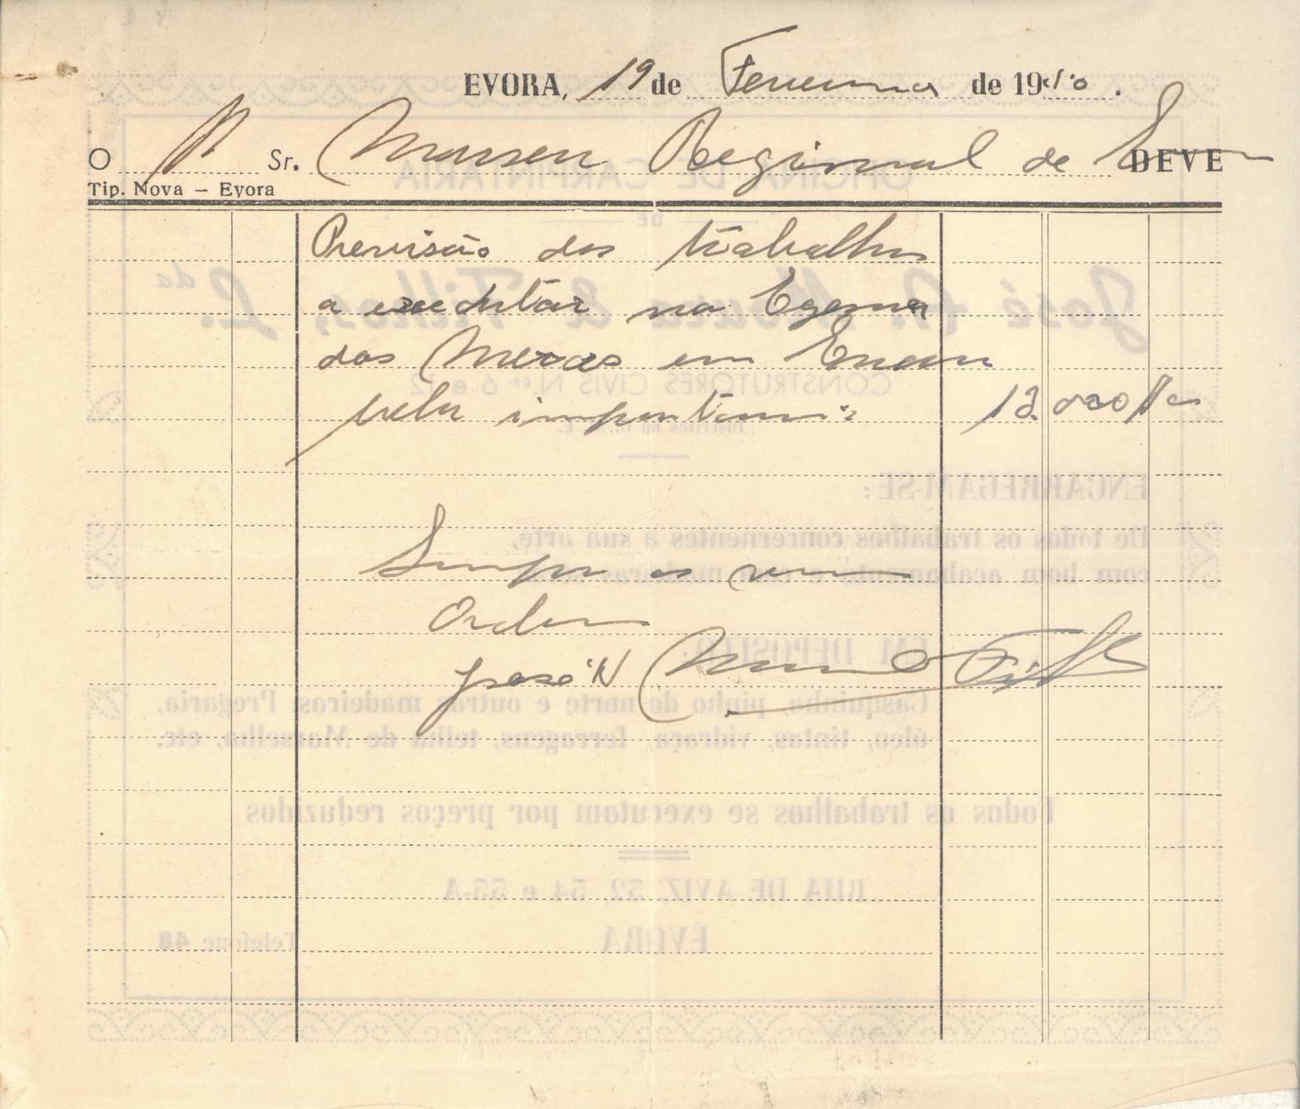 EVORA, 19 de Fevereiro de 1940.
O Sr. Museu Regional de DEVE
Tip. Nova — Evora
Previsão dos trabalhos
a executar na Egreja
das Mercês em Evora
pela importancia 12.000$00
Sempre as
Ordens
José N Moura & Filhos
OFICINA DE CARPINTARIA
DE
José N. Moura & Filhos, L.da
CONSTRUTORES CIVIS N.os 6 e 2
ENCARREGAM-SE:
De todos os trabalhos concernentes á sua arte,
com bom acabamento e boas madeiras
EM DEPOSITO:
Casquinha, pinho do norte e outras madeiras. Pregaria,
óleo, tintas, vidraça, ferragens, telha de Marselha, etc.
Todos os trabalhos se executam por preços reduzidos
RUA DE AVIZ, 52, 54 e 55-A
EVORA
Telefone 48